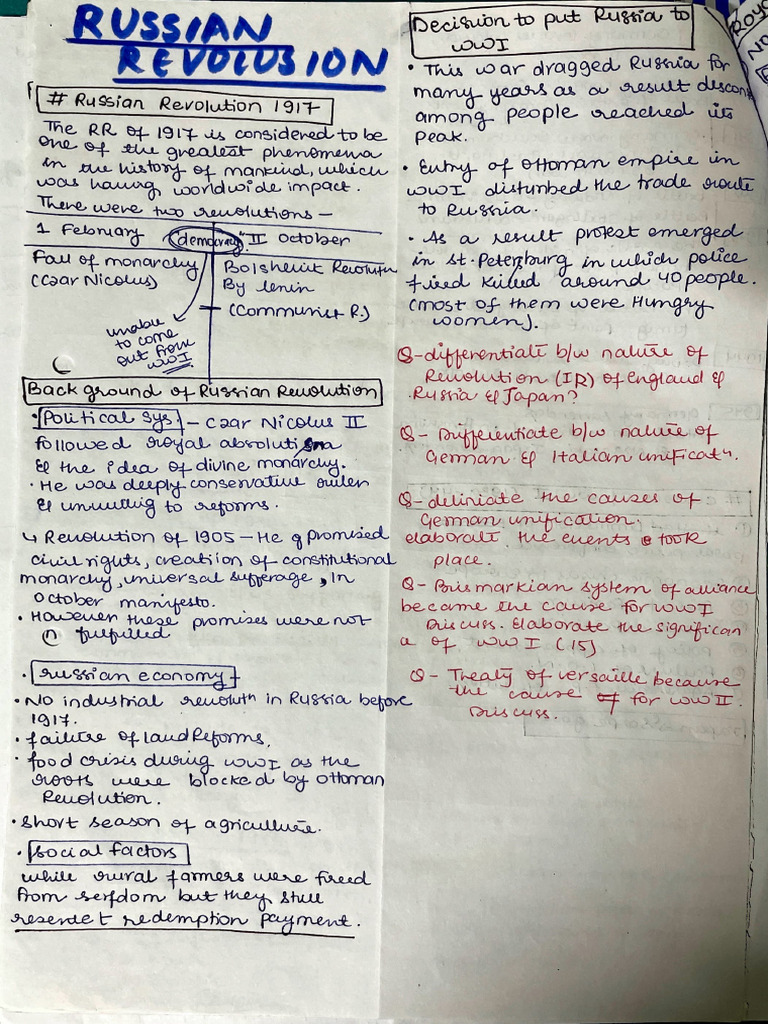 RUSSIAN
REVOLUSION
# Russian Revolution 1917
The RR of 1917 is considered to be
one of the greatest phenomena
in the history of mankind, which
was having worldwide impact.
There were two revolutions –
1 February
democracy
II October
Fall of monarchy
(Czar Nicolus)
Bolshevik Revolution
By Lenin
(Communist R.)
unable
to come
out from
WWI
Background of Russian Revolution
• Political Sys – Czar Nicolus II
followed royal absolutism
& the idea of divine monarchy.
• He was deeply conservative ruler
& unwilling to reforms.
↳ Revolution of 1905 – He promised
civil rights, creation of constitutional
monarchy, universal sufferage, In
October manifesto.
• However these promises were not
fulfilled
• russian economy
• No industrial revoluth in Russia before
1917.
• failure of land Reforms,
• food crisis during WWI as the
roots were blocked by Ottoman
Revolution.
• short season of agriculture.
• social factors
while rural farmers were freed
from serfdom but they still
redemption payment.
Decision to put Russia to
WWI
• This war dragged Russia for
many years as a result discon
among people reached its
peak.
• Entry of Ottoman empire in
WWI disturbed the trade route
to Russia.
• As a result protest emerged
in St. Petersburg in which police
fired killed around 40 people.
(most of them were Hungry
women).
Q- differentiate b/w nature of
Revolution (IR) of England &
Russia & Japan?
Q- Differentiate b/w nature of
German & Italian unificatn.
Q- deliniate the causes of
German unification.
elaborate the events took
place.
Q- Brismarkian system of alliance
became the cause for WWI
Discuss. Elaborate the significan
of WWI (15)
Q- Treaty of versaille because
the cause of for WWII.
Discuss.